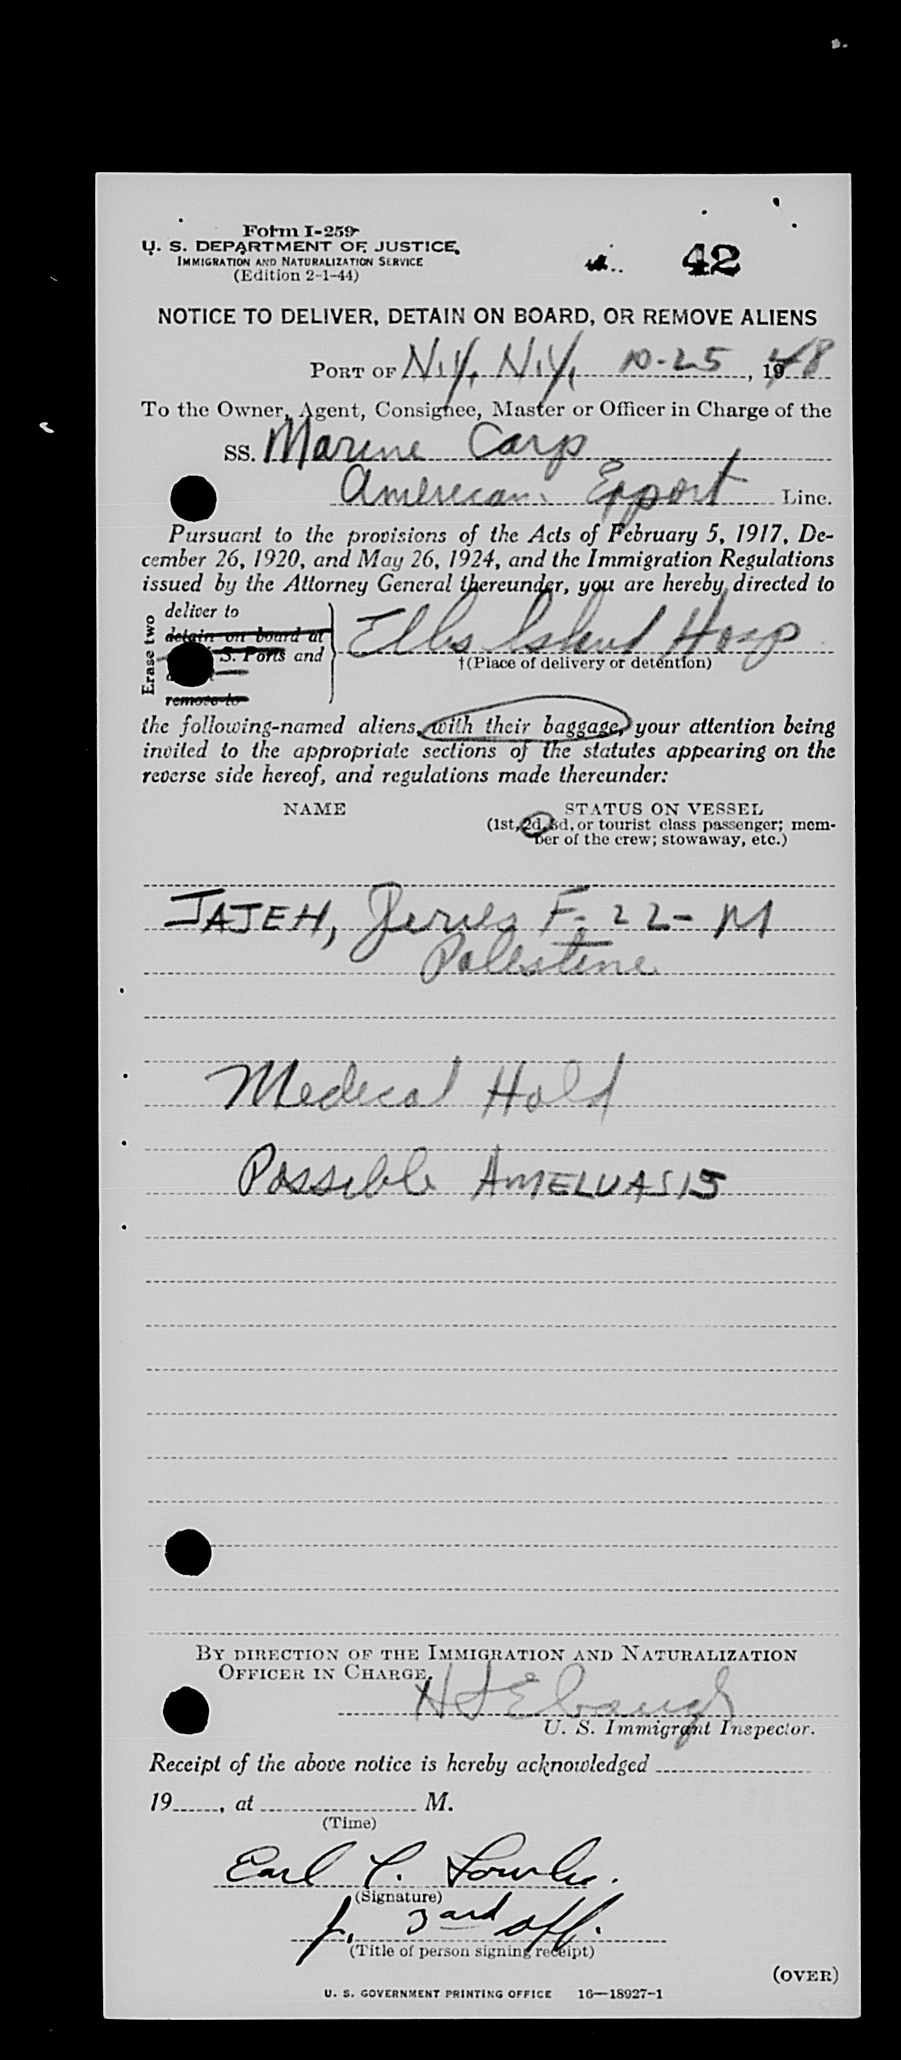 Form I-259
U. S. DEPARTMENT OF JUSTICE
IMMIGRATION AND NATURALIZATION SERVICE
(Edition 2-1-44)
42
NOTICE TO DELIVER, DETAIN ON BOARD, OR REMOVE ALIENS
PORT OF N.Y. N.Y. 10-25, 1948
To the Owner, Agent, Consignee, Master or Officer in Charge of the
SS. Marine Carp
American Export Line.
Pursuant to the provisions of the Acts of February 5, 1917, De-
cember 26, 1920, and May 26, 1924, and the Immigration Regulations
issued by the Attorney General thereunder, you are hereby directed to
Erase two
deliver to
detain on board at
S. Ports and
remove to
Ellis Island Hosp
†(Place of delivery or detention)
the following-named aliens, with their baggage, your attention being
invited to the appropriate sections of the statutes appearing on the
reverse side hereof, and regulations made thereunder:
NAME STATUS ON VESSEL
(1st, 2d, 3d, or tourist class passenger; mem-
ber of the crew; stowaway, etc.)
JAJEH, Jeries F. 22- M
Palestine
Medical Hold
Possible AMELUASIS
BY DIRECTION OF THE IMMIGRATION AND NATURALIZATION
OFFICER IN CHARGE,
H S Ebaugh
U. S. Immigrant Inspector.
Receipt of the above notice is hereby acknowledged
19......, at .................... M.
(Time)
Earl
(Signature)
J. 3ard off.
(Title of person signing receipt)
(OVER)
U. S. GOVERNMENT PRINTING OFFICE 16—18927-1